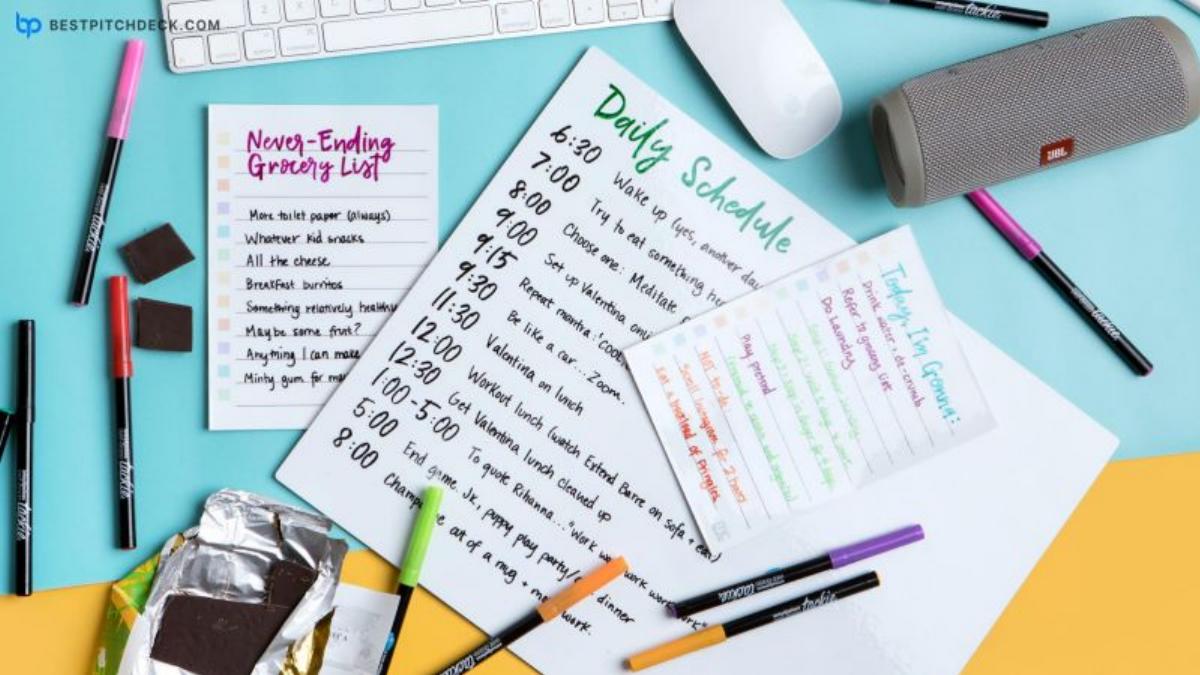 BESTPITCHDECK.COM
Never-Ending
Grocery List
More toilet paper (always)
Whatever kid snacks
All the cheese
Breakfast burritos
Something relatively healthy
Maybe some fruit?
Anything I can make
Minty gum for
Daily Schedule
6:30 Wake up (yes, another day
7:00 Try to eat something
8:00 Choose one: Meditate
9:00 Set up Valentina
9:15 Repeat mantra:
9:30 Be like a car... Zoom.
11:30 Valentina on lunch
12:00 Workout lunch (watch Extend Barre on sofa + eat)
12:30 Get Valentina lunch cleaned up
1:00-5:00 To quote Rihanna... "Work work work work work"
5:00 End game. JK, puppy play party/ dinner
8:00 Champagne out of a mug + more work.
Today, I'm Gonna:
Drink water + de-crumb
Refer to grocery list
Do Laundry
Play pretend
NOT to-do:
Scroll Instagram for 2 hours
Eat a truckload of Pringles
JBL
tackie
tackie
tackie
tackie
tackie
tackie
tackie
tackie